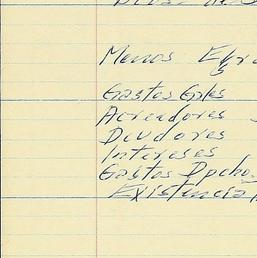 Menos
Gastos Gales
Acreadores
Deudores
Intereses
Gastos Dpcho
Existencia